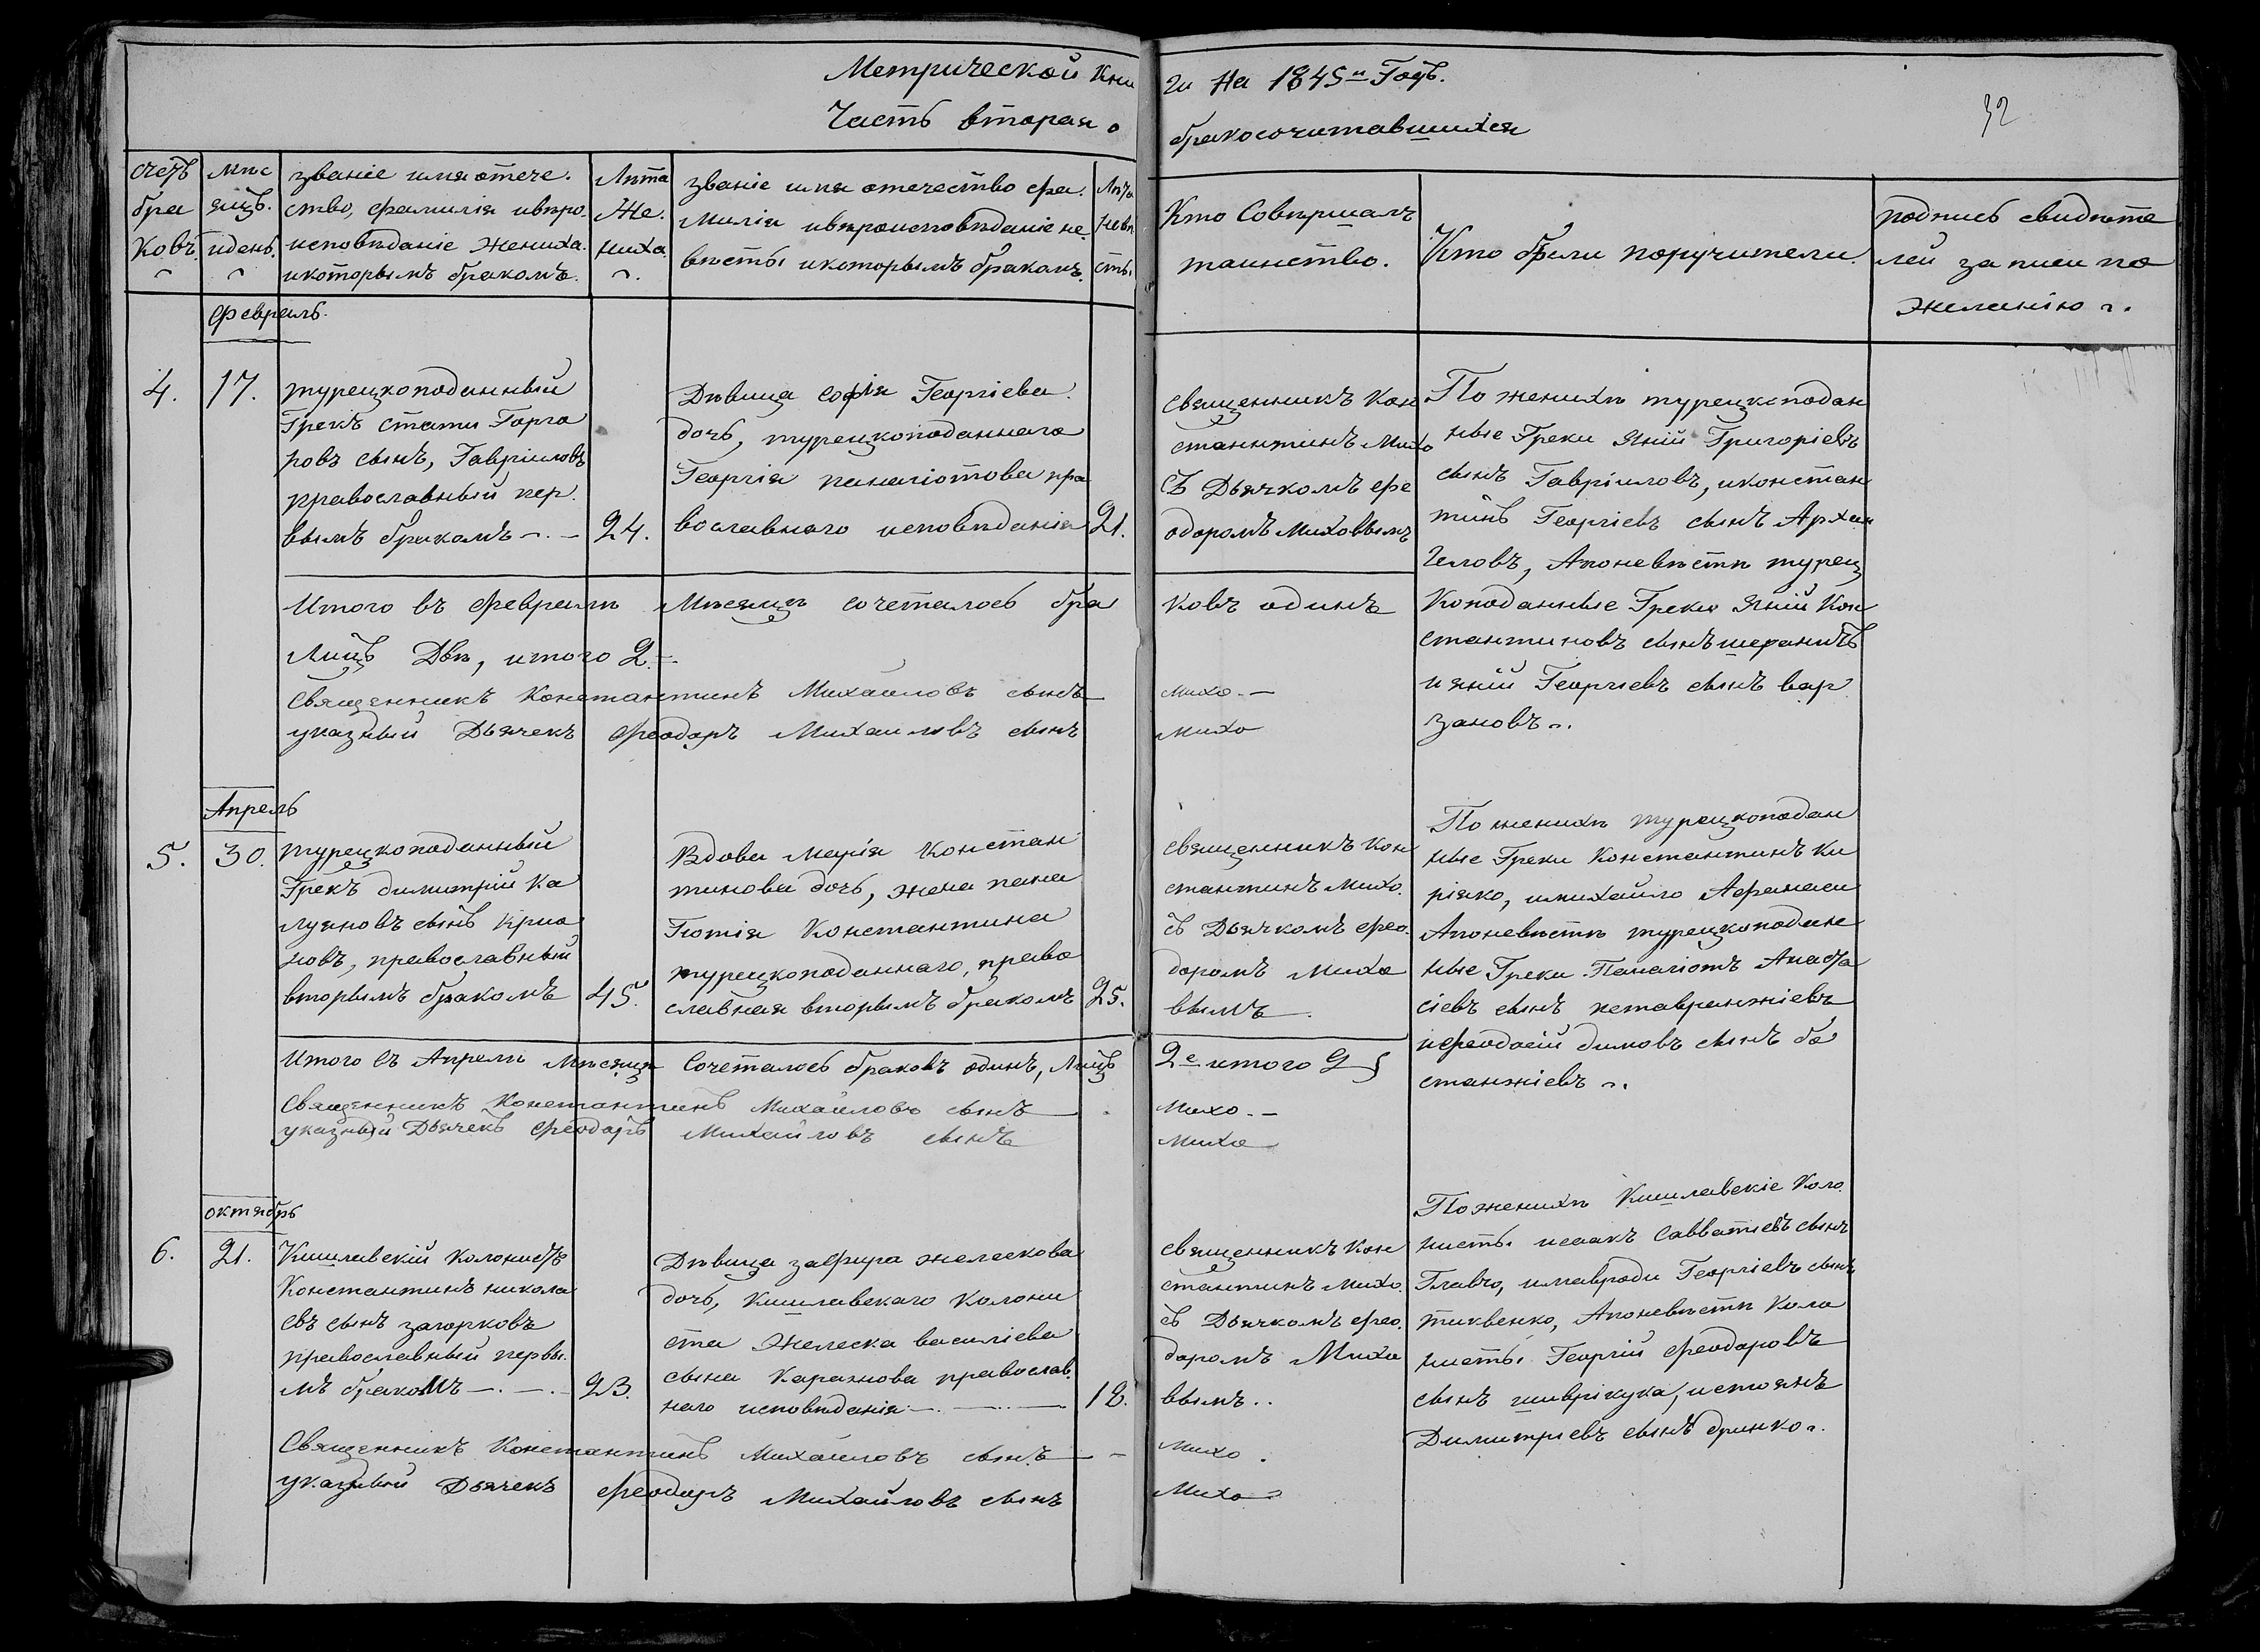 Метрической Кни
ги На 1845й Годъ.
Часть вторая о
бракосочитавшихся
32
счетъ бра ковъ.
мѣс яцъ. идень.
званіе имя отече.
ство, фамилія ивѣро.
исповѣданіе жениха.
икоторымъ бракомъ.
Лѣта Же. ниха.
званіе имя отечество фа.
милія ивѣроисповѣданіе не
вѣсты икоторымъ бракомъ.
Лѣта невѣ сты
Кто Совершалъ
таинство.
Кто были поручители.
подпись свидѣте
лей записи по
желанію
февраль.
4.
17.
турецкоподанный
Грекъ стати Горго
ровъ сынъ, Гавріиловъ
православный пер.
вымъ бракомъ
24.
Дѣвица софія Георгіева
дочь, турецкоподаннаго
Георгія панагіотова пра
вославнаго исповѣданія
21.
священникъ Кон
стантинъ Михо
съ Дьячкомъ фе
одоромъ Миховымъ
По женихѣ турецкоподан
ные Греки Яній Григоріевъ
сынъ Гавріиловъ, иконстан
тинъ Георгіевъ сынъАрхан
геловъ, Апоневѣстѣ турец
коподанные Греки Яній Кон
стантиновъ сынъ шеранитъ
ияній Георгіевъ сынъ вар
зановъ.
Итого въ февралѣ Мѣсяцѣ сочеталось бра
ковъ одинъ
Лицъ Двѣ, итого 2.
Священникъ Константинъ Михайловъ сынъ
михо.
указный Дьячекъ феодоръ Михаиловъ сынъ
михо
Апрель
5.
30.
турецкоподанный
Грекъ димитрій Ка
луяновъ сынъ Криа
ковъ, православный
вторымъ бракомъ
45.
Вдова Марія Констан
тинова дочь, жена пана
Гютія Константина
турецкоподаннаго, право
славная вторымъ бракомъ
25.
священникъ Кон
стантинъ михо.
съ Дьячкомъ фео.
доромъ Михо
вымъ
По женихѣ турецкоподан
ные Греки Константинъ Ки
ріяко, имихайло Афанаси
Апоневѣстѣ турецкоподан
ные Греки Панагіотъ Анаста
сіевъ сынъ
ифеодосій димовъ сынъ бо
станжіевъ.
Итого въ Апрелѣ Мѣсяцѣ Сочеталось браковъ одинъ, Лицъ
2е итого 2
Священникъ Константинъ Михайловъ сынъ
михо.
указный Дьячекъ феодоръ Михайловъ сынъ
михо
октябрь
6.
21.
Кишлавскій колонистъ
Константинъ никола
евъ сынъ загорковъ
православный первы.
мъ бракомъ
23.
Дѣвица зафира желескова
дочь, Кишлавскаго колони
ста Желеска василіева
сына Карахнова православ.
наго исповѣданія
18.
священникъ Кон
стантинъ михо.
съ Дьячкомъ фео.
доромъ Михо
вымъ..
По женихѣ Кишлавскіе Коло.
нисты исаакъ Савватіевъ сынъ
Главчо, имавроди Георгіевъ сынъ
тиквенко, Апоневѣстѣ Коло
нисты Георгій феодоровъ
сынъ шиврікука, истоянъ
Димитріевъ сынъ дринко.
Священникъ Константинъ Михаиловъ сынъ
михо
указный Дьячекъ феодоръ Михайловъ сынъ
михо